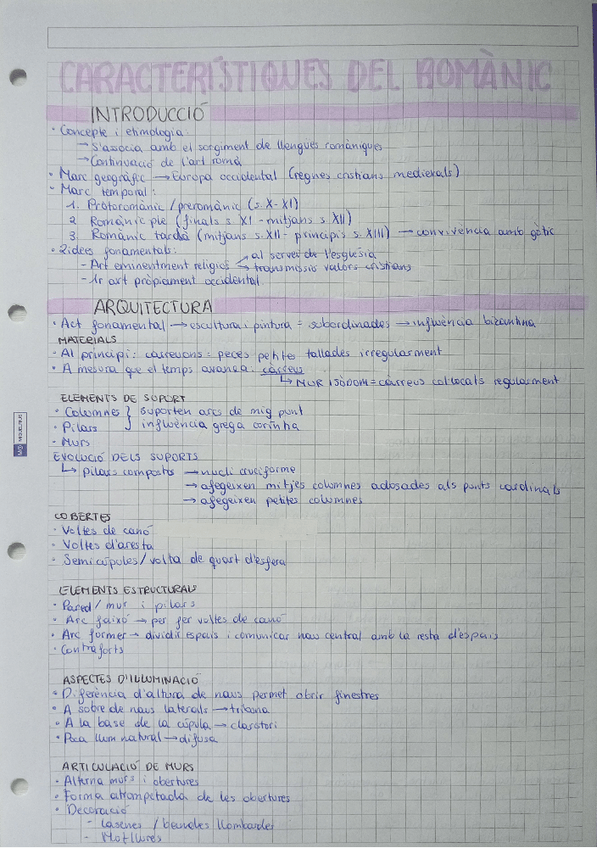 CARACTERÍSTIQUES DEL ROMÀNIC
INTRODUCCIÓ
· Concepte i etimologia
→ S'associa amb el sorgiment de llengües romàniques
→ Continuació de l'art romà
· Marc geogràfic → Europa occidental (regnes cristians medievals)
· Marc temporal:
1. Protoromànic / preromànic (s. X - XI)
2. Romànic ple (finals s. XI - mitjans s. XII)
3. Romànic tardà (mitjans s. XII - principis s. XIII) → convivència amb gòtic
· 2 idees fonamentals:
- Art eminentment religiós → al servei de l'església
→ transmissió valors cristians
- 1r art pròpiament occidental
ARQUITECTURA
· Art fonamental → escultura i pintura = subordinades → influència bizantina
MATERIALS
· Al principi: carreuons = peces petites tallades irregularment
· A mesura que el temps avança: carreus
↳ MUR ISÒDOM = carreus col·locats regularment
ELEMENTS DE SUPORT
· Columnes } suporten arcs de mig punt
· Pilars } influència grega coríntia
· Murs
EVOLUCIÓ DELS SUPORTS
↳ Pilars compostos → nucli cruciforme
→ afegeixen mitjes columnes adosades als punts cardinals
→ afegeixen petites columnes
COBERTES
· Voltes de canó
· Voltes d'aresta
· Semicúpules / volta de quart d'esfera
ELEMENTS ESTRUCTURALS
· Pared / mur i pilars
· Arc faixó → per fer voltes de canó
· Arc former → dividir espais i comunicar nau central amb la resta d'espais
· Contraforts
ASPECTES D'IL·LUMINACIÓ
· Diferència d'altura de naus permet obrir finestres
· A sobre de naus laterals → tribuna
· A la base de la cúpula → claristori
· Poca llum natural → difusa
ARTICULACIÓ DE MURS
· Alterna murs i obertures
· Forma atrompetada de les obertures
· Decoració
- Lesenes / bandes llombardes
- Motllures